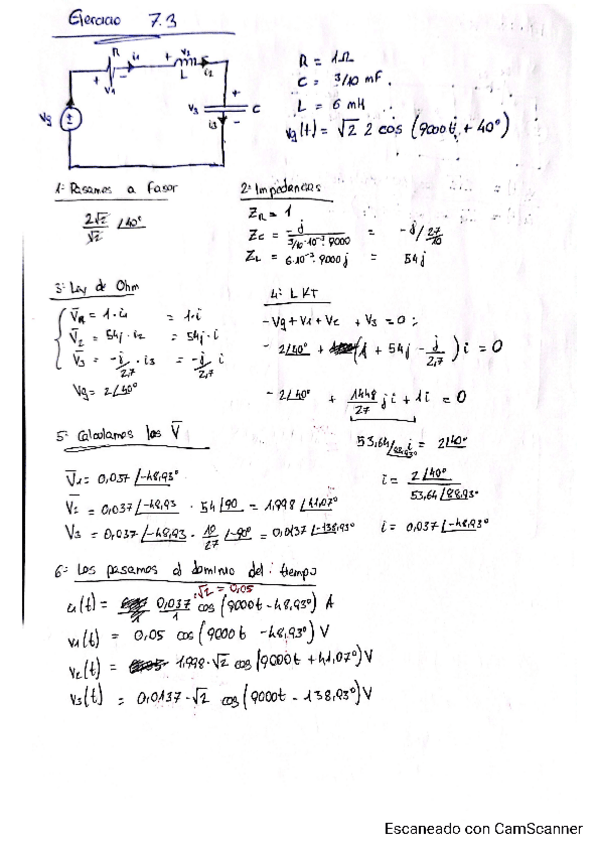 Ejercicio 7.3
R i1 v2 L i2
v1
Vg v3 C
i3
R = 1Ω
C = 3/10 mF.
L = 6 mH
vg(t) = √2 2 cos (9000t + 40°)
1: Pasamos a fasor
2√2/√2 ∠40°
2: Impedancias
ZR = 1
ZC = -j/(3/10·10⁻³·9000) = -j/(27/10)
ZL = 6·10⁻³·9000j = 54j
3: Ley de Ohm
V̄R = 1·i1 = 1·i
V̄2 = 54j·i2 = 54j·i
V̄3 = -j/2,7·i3 = -j/2,7 i
Vg = 2∠40°
4: LKT
-Vg + V1 + V2 + V3 = 0;
- 2∠40° + (1 + 54j - j/2,7) i = 0
- 2∠40° + 1448/27 ji + 1i = 0
53,64∠88,93° i = 2∠40°
i = 2∠40° / 53,64∠88,93°
i = 0,037∠-48,93°
5: Calculamos los V̄
V̄1 = 0,037∠-48,93°
V̄2 = 0,037∠-48,93 · 54∠90 = 1,998∠41,07°
V3 = 0,037∠-48,93 · 10/27 ∠-90° = 0,0137∠-138,93°
6: Los pasamos al dominio del tiempo
·√2 = 0,05
i1(t) = 0,037/1 cos (9000t - 48,93°) A
v1(t) = 0,05 cos (9000t - 48,93°) V
v2(t) = 1,998·√2 cos (9000t + 41,07°) V
v3(t) = 0,0137·√2 cos (9000t - 138,93°) V
Escaneado con CamScanner